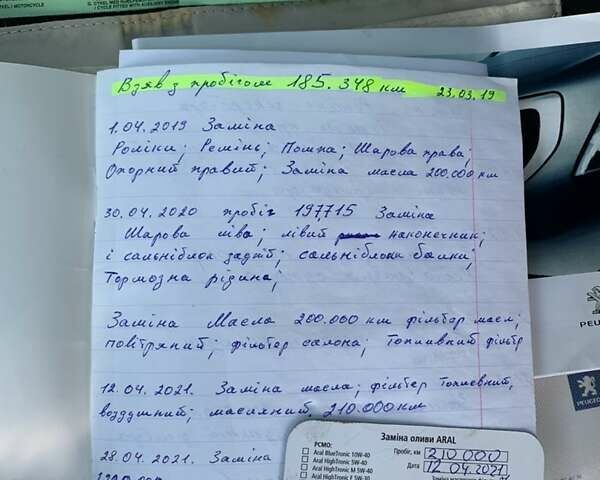 CYKEL M / MOTORCYCLE
/ CYCLE FITTED WITH AUXILIARY ENGINE
Взяв з пробігом 185.348 км 23.03.19
1.04.2019 Заміна
Роліки; Ремінь; Помпа; Шарова права;
Опорний правий; Заміна масла 200.000 км
30.04.2020 пробіг 197,715 Заміна
Шарова ліва; лівий наконечник;
і сальніблок задній; сальніблоки балки;
Тормозна рідина;
Заміна Масла 200.000 км фільтер масл;
повітряний; фільтер салона; Топливний фільтр
12.04.2021. Заміна масла; фільтер Топливний,
воздушний; масляний, 210.000 км
28.04.2021. Заміна
PEU
PEUGEOT
Заміна оливи ARAL
PCMO:
Aral BlueTronic 10W-40
Aral HighTronic 5W-40
Aral HighTronic M 5W-40
Aral HighTronic F 5W-30
Пробіг, км 210 000
Дата 12.04.2021